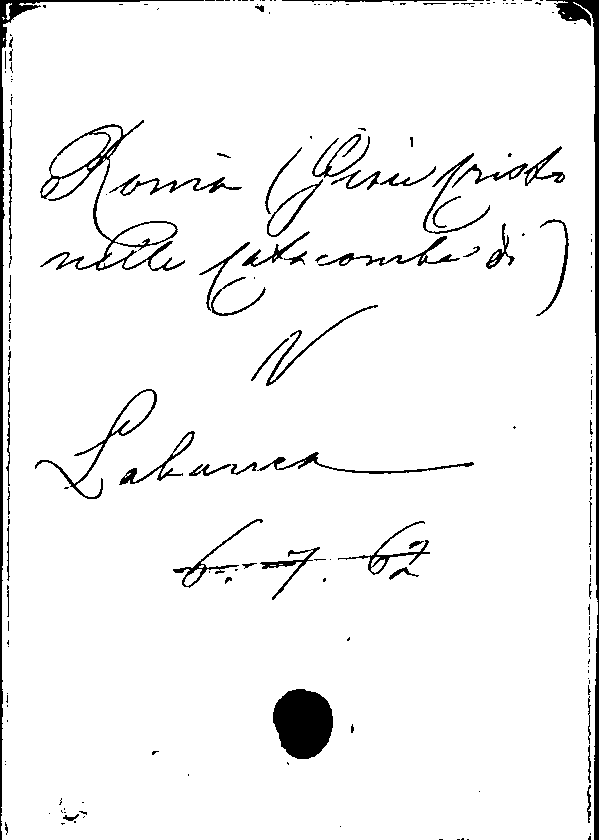 Roma (Gesù Cristo
nelle Catacombe di)
V
Labanca
6. 7. 62